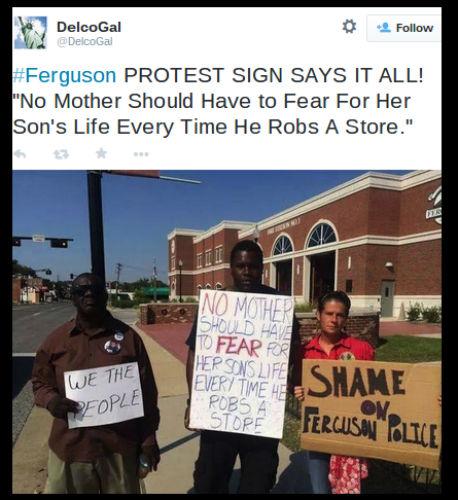 DelcoGal
@DelcoGal
Follow
#Ferguson PROTEST SIGN SAYS IT ALL!
"No Mother Should Have to Fear For Her
Son's Life Every Time He Robs A Store."
WE THE
PEOPLE
NO MOTHER
SHOULD HAVE
TO FEAR FOR
HER SONS LIFE
EVERY TIME HE
ROBS A
STORE
SHAME
ON
FERGUSON POLICE